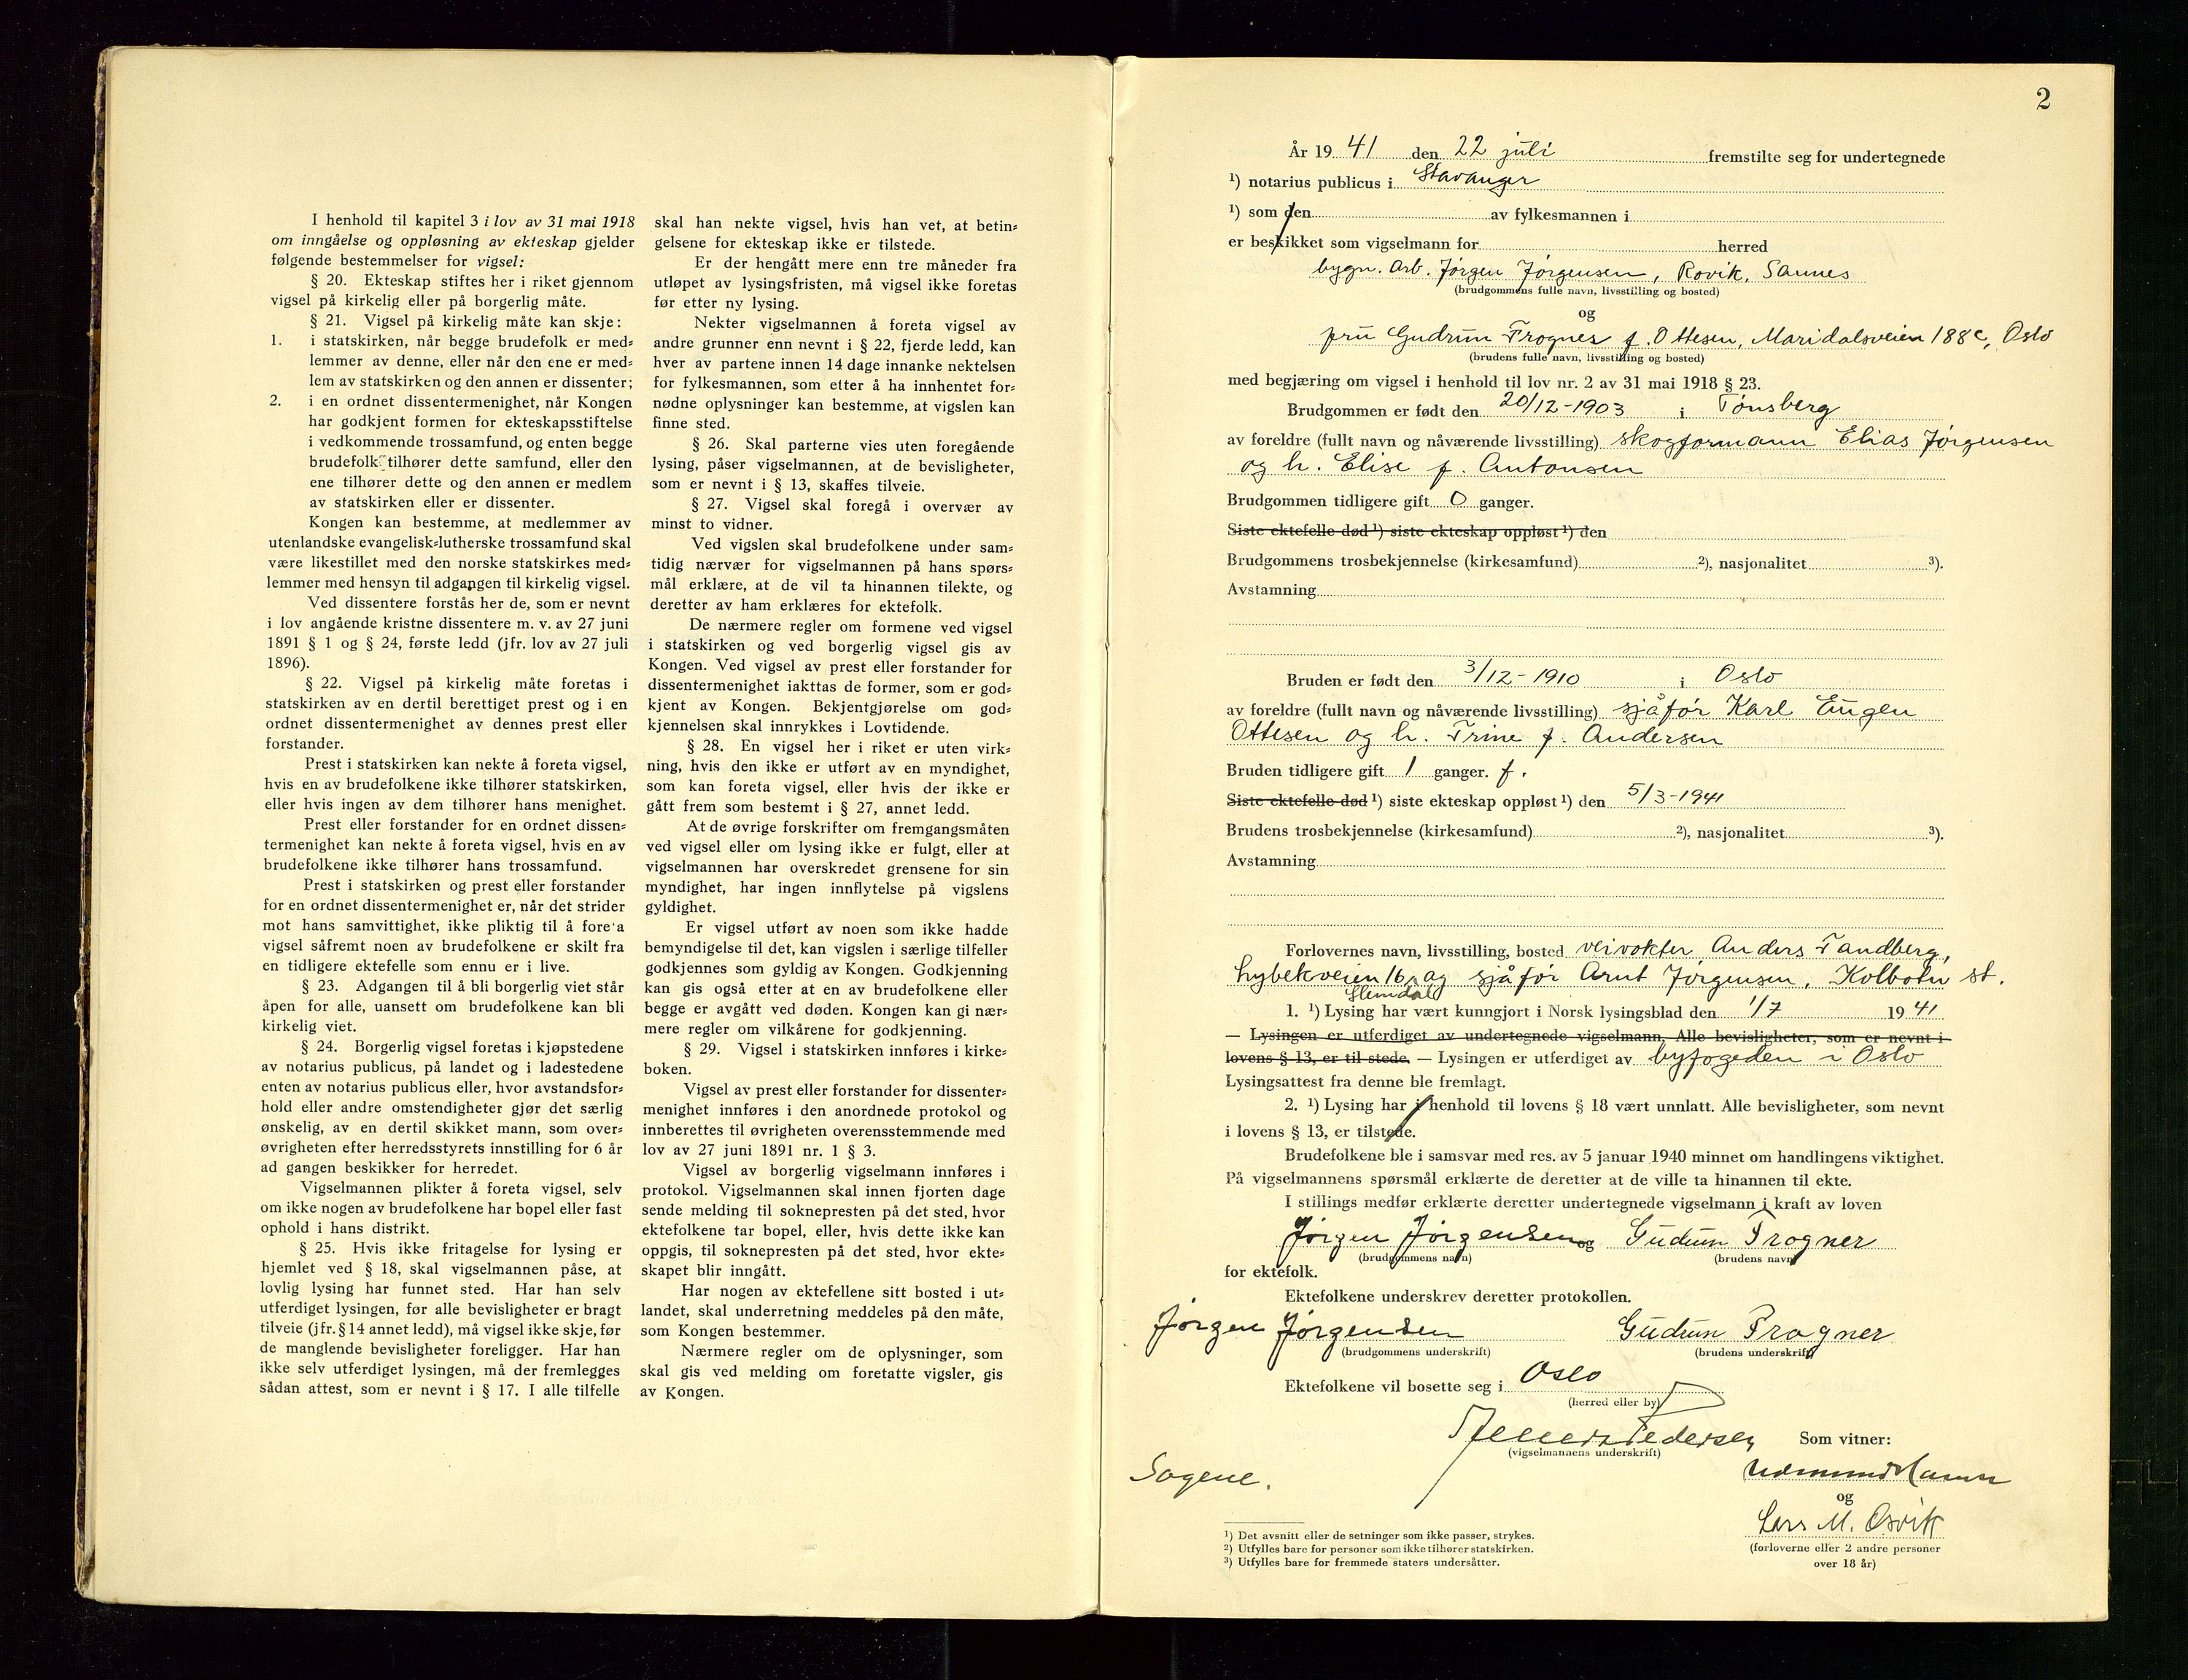 I henhold til kapitel 3 i lov av 31 mai 1918
om inngåelse og oppløsning av ekteskap gjelder
følgende bestemmelser for vigsel:
§ 20. Ekteskap stiftes her i riket gjennom
vigsel på kirkelig eller på borgerlig måte.
§ 21. Vigsel på kirkelig måte kan skje:
1. i statskirken, når begge brudefolk er med=
lemmer av denne, eller når den ene er med=
lem av statskirken og den annen er dissenter;
2. i en ordnet dissentermenighet, når Kongen
har godkjent formen for ekteskapsstiftelse
i vedkommende trossamfund, og enten begge
brudefolk tilhører dette samfund, eller den
ene tilhører dette og den annen er medlem
av statskirken eller er dissenter.
Kongen kan bestemme, at medlemmer av
utenlandske evangelisk=lutherske trossamfund skal
være likestillet med den norske statskirkes med=
lemmer med hensyn til adgangen til kirkelig vigsel.
Ved dissentere forstås her de, som er nevnt
i lov angående kristne dissentere m. v. av 27 juni
1891 § 1 og § 24, første ledd (jfr. lov av 27 juli
1896).
§ 22. Vigsel på kirkelig måte foretas i
statskirken av en dertil berettiget prest og i en
ordnet dissentermenighet av dennes prest eller
forstander.
Prest i statskirken kan nekte å foreta vigsel,
hvis en av brudefolkene ikke tilhører statskirken,
eller hvis ingen av dem tilhører hans menighet.
Prest eller forstander for en ordnet dissen=
termenighet kan nekte å foreta vigsel, hvis en av
brudefolkene ikke tilhører hans trossamfund.
Prest i statskirken og prest eller forstander
for en ordnet dissentermenighet er, når det strider
mot hans samvittighet, ikke pliktig til å fore'a
vigsel såfremt noen av brudefolkene er skilt fra
en tidligere ektefelle som ennu er i live.
§ 23. Adgangen til å bli borgerlig viet står
åpen for alle, uansett om brudefolkene kan bli
kirkelig viet.
§ 24. Borgerlig vigsel foretas i kjøpstedene
av notarius publicus, på landet og i ladestedene
enten av notarius publicus eller, hvor avstandsfor=
hold eller andre omstendigheter gjør det særlig
ønskelig, av en dertil skikket mann, som over=
øvrigheten efter herredsstyrets innstilling for 6 år
ad gangen beskikker for herredet.
Vigselmannen plikter å foreta vigsel, selv
om ikke nogen av brudefolkene har bopel eller fast
ophold i hans distrikt.
§ 25. Hvis ikke fritagelse for lysing er
hjemlet ved § 18, skal vigselmannen påse, at
lovlig lysing har funnet sted. Har han selv
utferdiget lysingen, før alle bevisligheter er bragt
tilveie (jfr. § 14 annet ledd), må vigsel ikke skje, før
de manglende bevisligheter foreligger. Har han
ikke selv utferdiget lysingen, må der fremlegges
sådan attest, som er nevnt i § 17. I alle tilfelle
skal han nekte vigsel, hvis han vet, at betin=
gelsene for ekteskap ikke er tilstede.
Er der hengått mere enn tre måneder fra
utløpet av lysingsfristen, må vigsel ikke foretas
før etter ny lysing.
Nekter vigselmannen å foreta vigsel av
andre grunner enn nevnt i § 22, fjerde ledd, kan
hver av partene innen 14 dage innanke nektelsen
for fylkesmannen, som etter å ha innhentet for=
nødne oplysninger kan bestemme, at vigslen kan
finne sted.
§ 26. Skal parterne vies uten foregående
lysing, påser vigselmannen, at de bevisligheter,
som er nevnt i § 13, skaffes tilveie.
§ 27. Vigsel skal foregå i overvær av
minst to vidner.
Ved vigslen skal brudefolkene under sam=
tidig nærvær for vigselmannen på hans spørs=
mål erklære, at de vil ta hinannen tilekte, og
deretter av ham erklæres for ektefolk.
De nærmere regler om formene ved vigsel
i statskirken og ved borgerlig vigsel gis av
Kongen. Ved vigsel av prest eller forstander for
dissentermenighet iakttas de former, som er god=
kjent av Kongen. Bekjentgjørelse om god=
kjennelsen skal innrykkes i Lovtidende.
§ 28. En vigsel her i riket er uten virk=
ning, hvis den ikke er utført av en myndighet,
som kan foreta vigsel, eller hvis der ikke er
gått frem som bestemt i § 27, annet ledd.
At de øvrige forskrifter om fremgangsmåten
ved vigsel eller om lysing ikke er fulgt, eller at
vigselmannen har overskredet grensene for sin
myndighet, har ingen innflytelse på vigslens
gyldighet.
Er vigsel utført av noen som ikke hadde
bemyndigelse til det, kan vigslen i særlige tilfeller
godkjennes som gyldig av Kongen. Godkjenning
kan gis også etter at en av brudefolkene eller
begge er avgått ved døden. Kongen kan gi nær=
mere regler om vilkårene for godkjenning.
§ 29. Vigsel i statskirken innføres i kirke=
boken.
Vigsel av prest eller forstander for dissenter=
menighet innføres i den anordnede protokol og
innberettes til øvrigheten overensstemmende med
lov av 27 juni 1891 nr. 1 § 3.
Vigsel av borgerlig vigselmann innføres i
protokol. Vigselmannen skal innen fjorten dage
sende melding til soknepresten på det sted, hvor
ektefolkene tar bopel, eller, hvis dette ikke kan
oppgis, til soknepresten på det sted, hvor ekte=
skapet blir inngått.
Har nogen av ektefellene sitt bosted i ut=
landet, skal underretning meddeles på den måte,
som Kongen bestemmer.
Nærmere regler om de oplysninger, som
skal gis ved melding om foretatte vigsler, gis
av Kongen.
2
År 19 41 den 22 juli fremstilte seg for undertegnede
1) notarius publicus i Stavanger
1) som den av fylkesmannen i
er beskikket som vigselmann for herred
bygn. arb. Jørgen Jørgensen, Rovik, Sannes
(brudgommens fulle navn, livsstilling og bosted)
og
fru Gudrun Frogner f. Ottesen, Maridalsveien 188c, Oslo
(brudens fulle navn, livsstilling og bosted)
med begjæring om vigsel i henhold til lov nr. 2 av 31 mai 1918 § 23.
Brudgommen er født den 20/12-1903 i Tønsberg
av foreldre (fullt navn og nåværende livsstilling) skogformann Elias Jørgensen
og h. Elise f. Antonsen
Brudgommen tidligere gift 0 ganger.
Siste ektefelle død 1) siste ekteskap oppløst 1) den
Brudgommens trosbekjennelse (kirkesamfund) 2), nasjonalitet 3).
Avstamning
Bruden er født den 3/12-1910 i Oslo
av foreldre (fullt navn og nåværende livsstilling) sjåfør Karl Eugen
Ottesen og h. Trine f. Andersen
Bruden tidligere gift 1 ganger. f.
Siste ektefelle død 1) siste ekteskap oppløst 1) den 5/3-1941
Brudens trosbekjennelse (kirkesamfund) 2), nasjonalitet 3).
Avstamning
Forlovernes navn, livsstilling, bosted veivokter Anders Tandberg,
Lybekveien 16, og sjåfør Arnt Jørgensen, Kolbotn st.
Slemdal
1. 1) Lysing har vært kunngjort i Norsk lysingsblad den 1/7 19 41
— Lysingen er utferdiget av undertegnede vigselmann, Alle bevisligheter, som er nevnt i
lovens § 13, er til stede. — Lysingen er utferdiget av byfogeden i Oslo
Lysingsattest fra denne ble fremlagt.
2. 1) Lysing har i henhold til lovens § 18 vært unnlatt. Alle bevisligheter, som nevnt
i lovens § 13, er tilstede.
Brudefolkene ble i samsvar med res. av 5 januar 1940 minnet om handlingens viktighet.
På vigselmannens spørsmål erklærte de deretter at de ville ta hinannen til ekte.
I stillings medfør erklærte deretter undertegnede vigselmann i kraft av loven
Jørgen Jørgensen og Gudrun Frogner
(brudgommens navn) (brudens navn)
for ektefolk.
Ektefolkene underskrev deretter protokollen.
Jørgen Jørgensen Gudrun Frogner
(brudgommens underskrift) (brudens underskrift)
Ektefolkene vil bosette seg i Oslo
(herred eller by)
Pedersen Som vitner:
(vigselmannens underskrift)
Sagene.
og
Lars M. Osvik
(forloverne eller 2 andre personer
over 18 år)
1) Det avsnitt eller de setninger som ikke passer, strykes.
2) Utfylles bare for personer som ikke tilhører statskirken.
3) Utfylles bare for fremmede staters undersåtter.